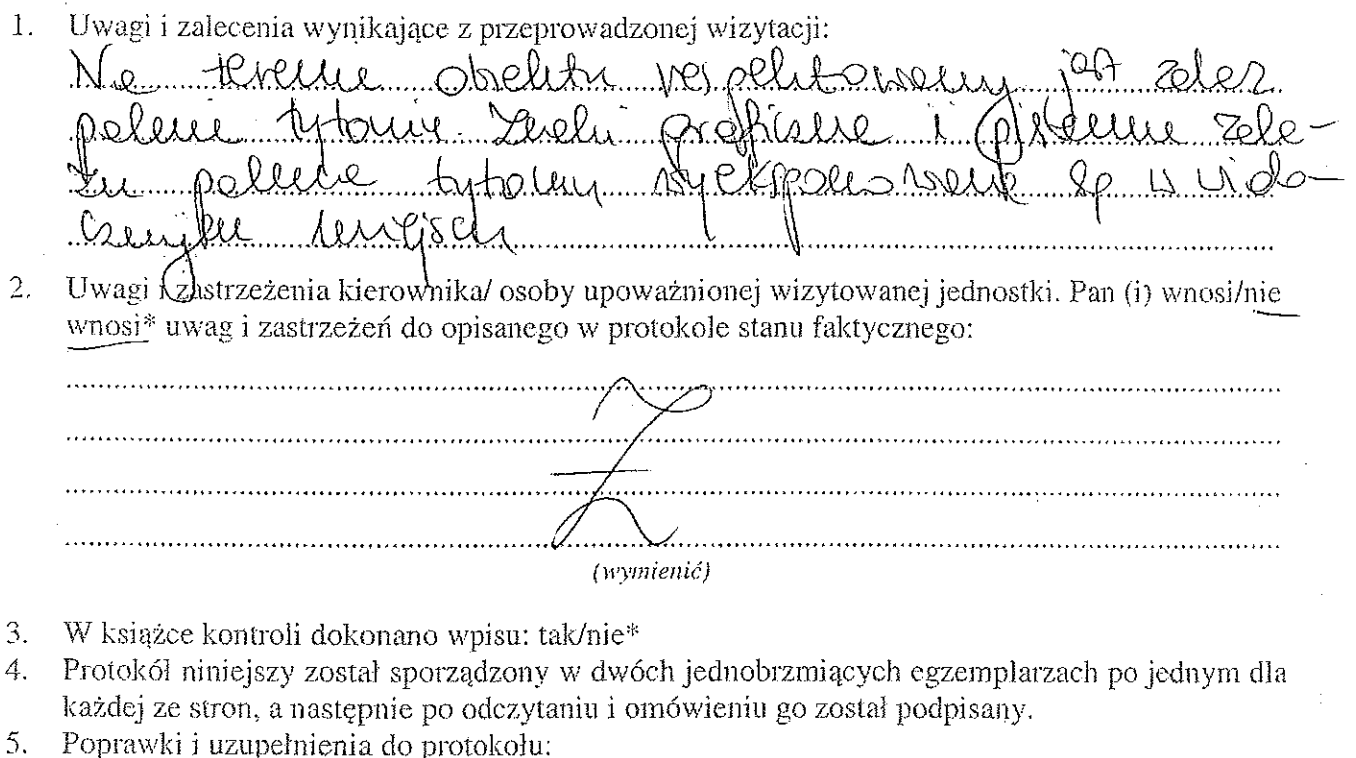 1. Uwagi i zalecenia wynikające z przeprowadzonej wizytacji:
Na terenie obiektu respektowany jest zakaz
palenia tytoniu. Znaki graficzne i pisemne zaka-
zu palenia tytoniu wyeksponowane są w wido-
cznych miejscach
2. Uwagi i zastrzeżenia kierownika/ osoby upoważnionej wizytowanej jednostki. Pan (i) wnosi/nie
wnosi* uwag i zastrzeżeń do opisanego w protokole stanu faktycznego:
(wymienić)
3. W książce kontroli dokonano wpisu: tak/nie*
4. Protokół niniejszy został sporządzony w dwóch jednobrzmiących egzemplarzach po jednym dla
każdej ze stron, a następnie po odczytaniu i omówieniu go został podpisany.
5. Poprawki i uzupełnienia do protokołu: